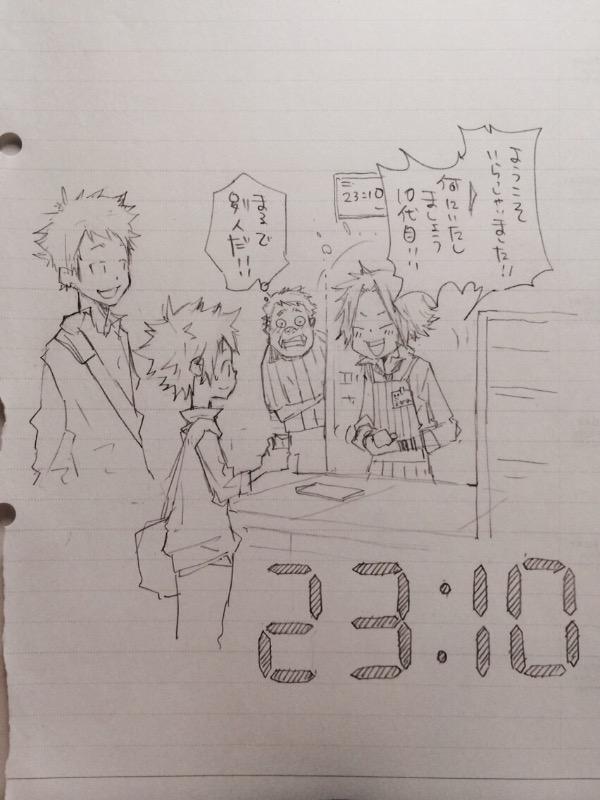 ようこそ
いらっしゃいました!!
何にいたし
ましょう
10代目!!
23:10
まるで
別人だ!!
23:10